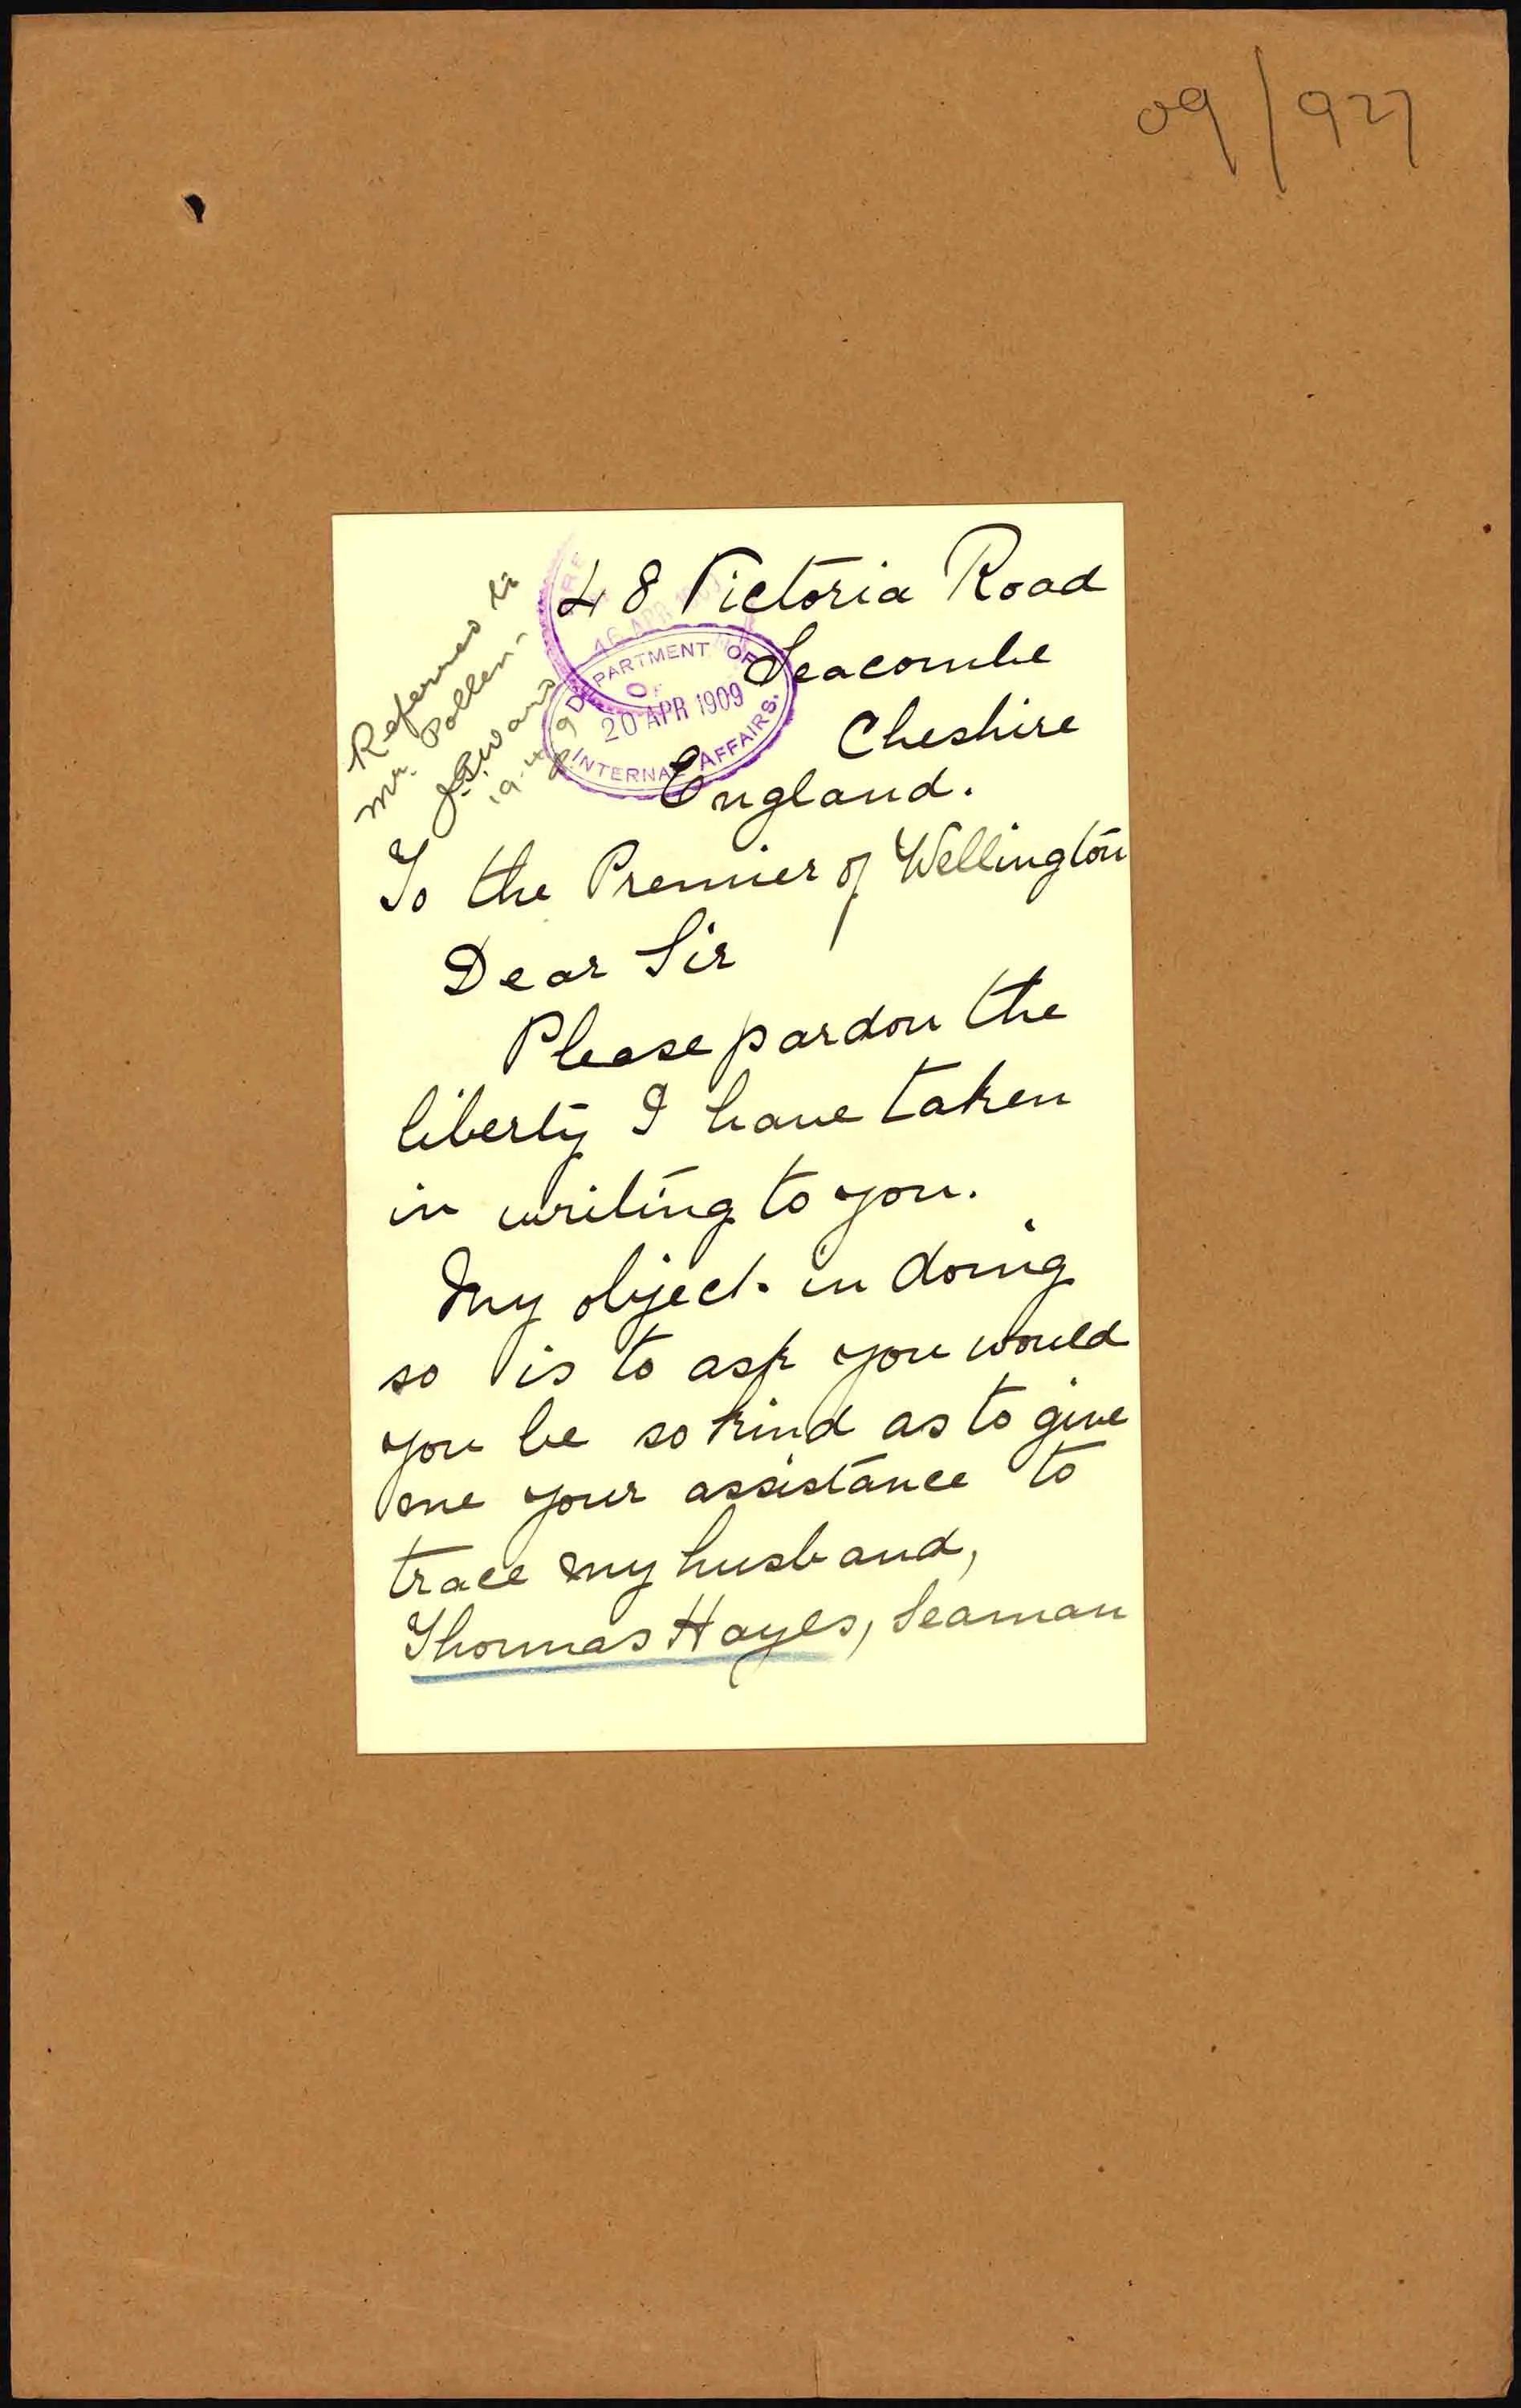 09/927
Referred to
Mr. Pollen.
19.4.09
16 APR 1909
DEPARTMENT OF
20 APR 1909
INTERNAL AFFAIRS.
48 Victoria Road
Seacombe
Cheshire
England.
To the Premier of Wellington
Dear Sir
Please pardon the
liberty I have taken
in writing to you.
My object in doing
so is to ask you would
you be so kind as to give
me your assistance to
trace my husband,
Thomas Hayes, Seaman